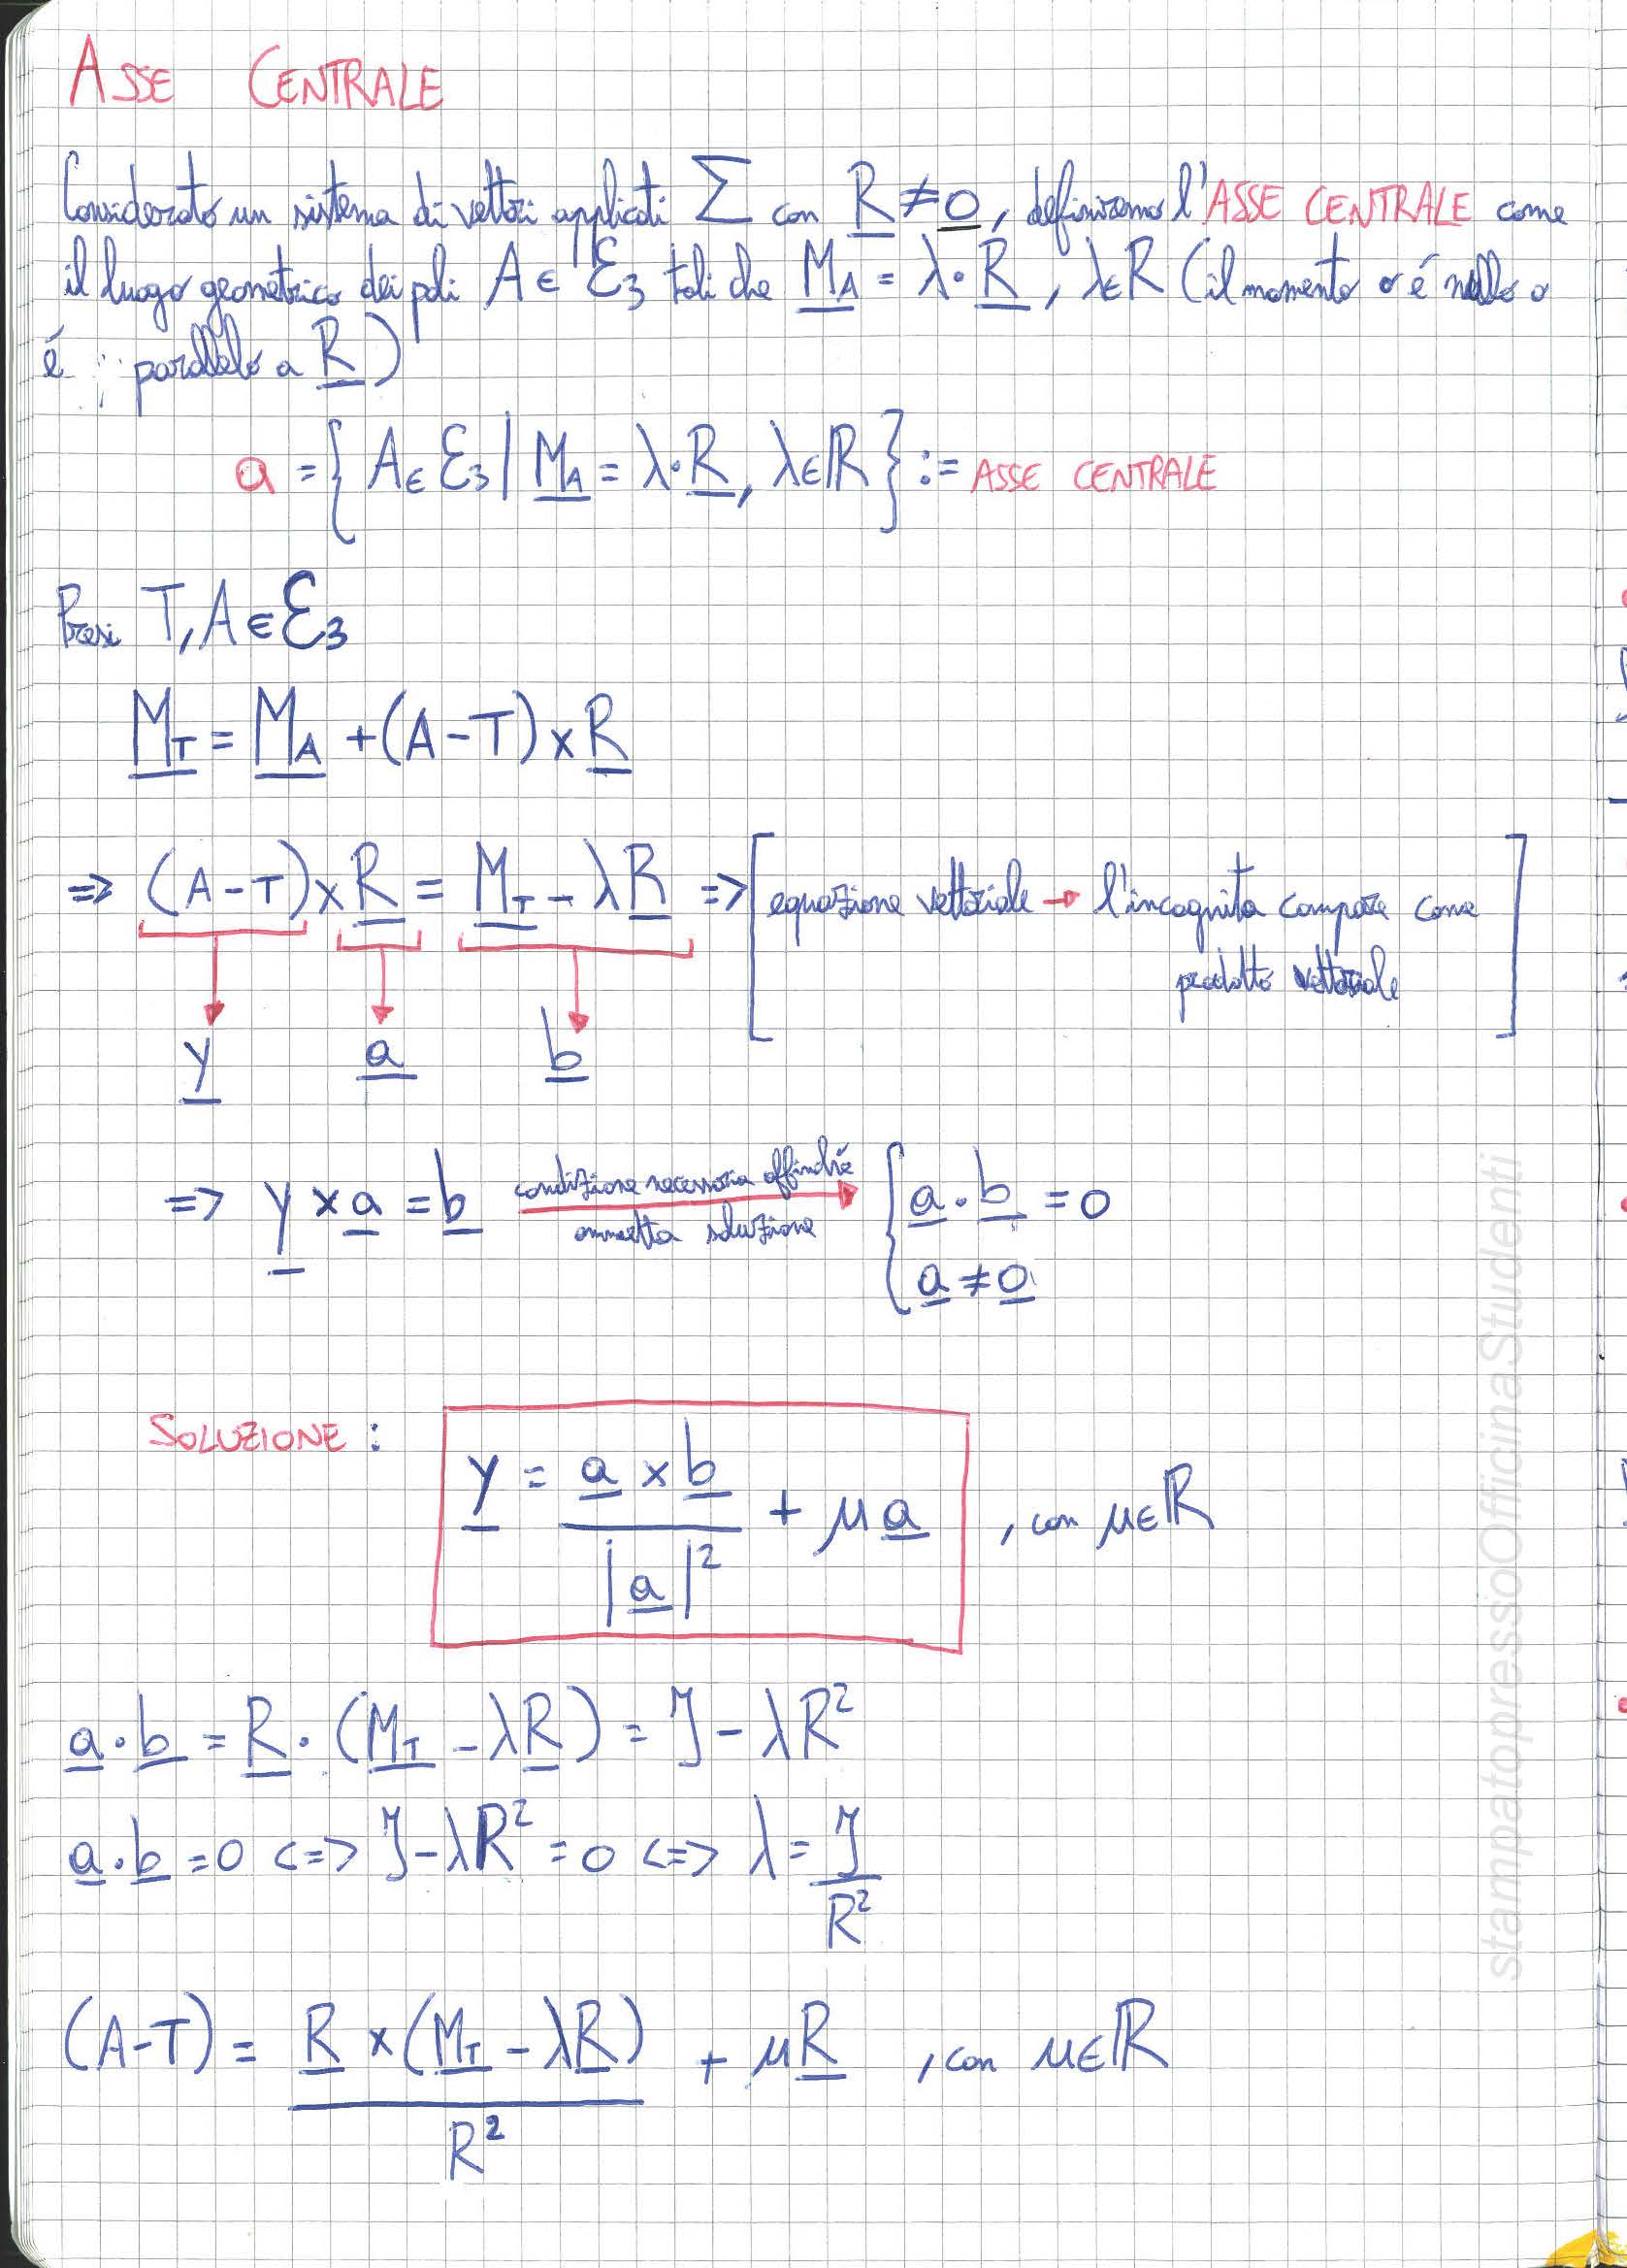 ASSE CENTRALE
Considerato un sistema di vettori applicati Σ con R ≠ 0, definiremo l'ASSE CENTRALE come
il luogo geometrico dei poli A ∈ ℰ3 tali che MA = λ·R, λ∈R (il momento o é nullo o
é parallelo a R)
a = {A ∈ ℰ3 | MA = λ·R, λ∈ℝ} := ASSE CENTRALE
Presi T, A ∈ ℰ3
MT = MA + (A-T) × R
=> (A-T) × R = MT - λR => [equazione vettoriale → l'incognita compare come
prodotto vettoriale]
y a b
=> y × a = b condizione necessaria affinché { a · b = 0
ammetta soluzione
a ≠ 0
SOLUZIONE : y = a × b / |a|² + μ a , con μ∈ℝ
a · b = R · (MT - λR) = J - λR²
a · b = 0 <=> J - λR² = 0 <=> λ = J / R²
(A-T) = R × (MT - λR) / R² + μR , con μ∈ℝ
stampatopressoOfficinaStudenti